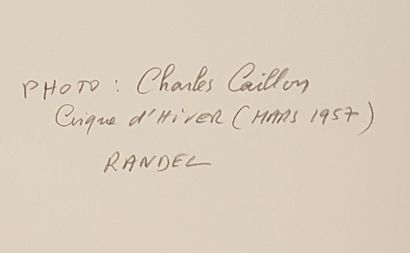 PHOTO : Charles Caillon
Cirque d'HiVER (MARS 1957)
RANDEL